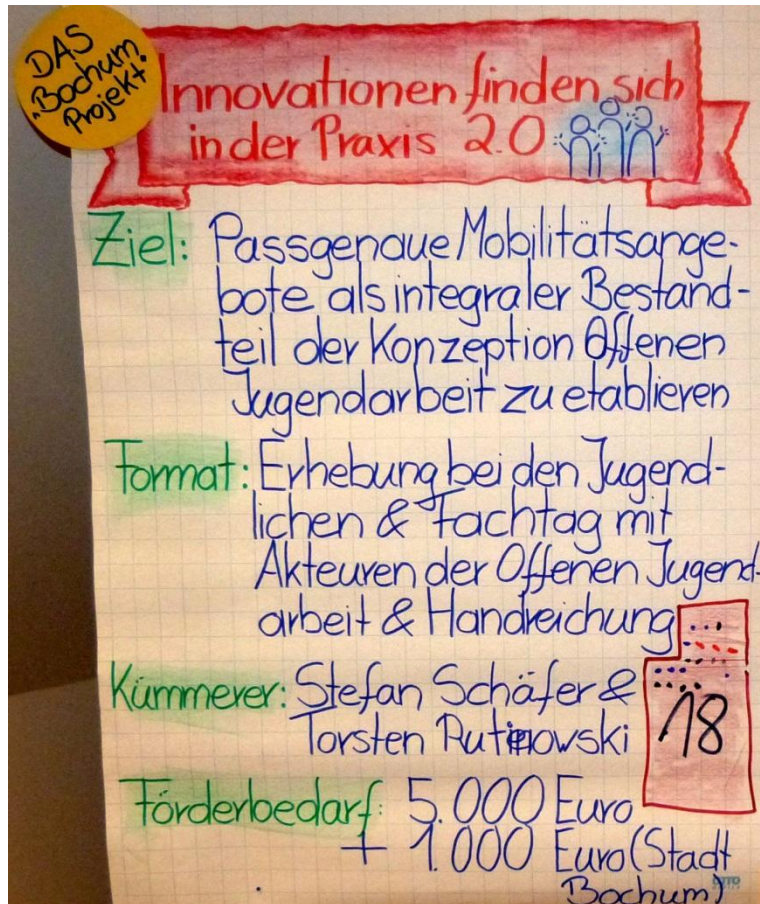 DAS
„Bochum
Projekt“
Innovationen finden sich
in der Praxis 2.0
Ziel: Passgenaue Mobilitätsange-
bote als integraler Bestand-
teil der Konzeption Offenen
Jugendarbeit zu etablieren
Format: Erhebung bei den Jugend-
lichen & Fachtag mit
Akteuren der Offenen Jugend-
arbeit & Handreichung
Kümmerer: Stefan Schäfer &
Torsten
18
Förderbedarf: 5.000 Euro
+ 1.000 Euro (Stadt
Bochum)